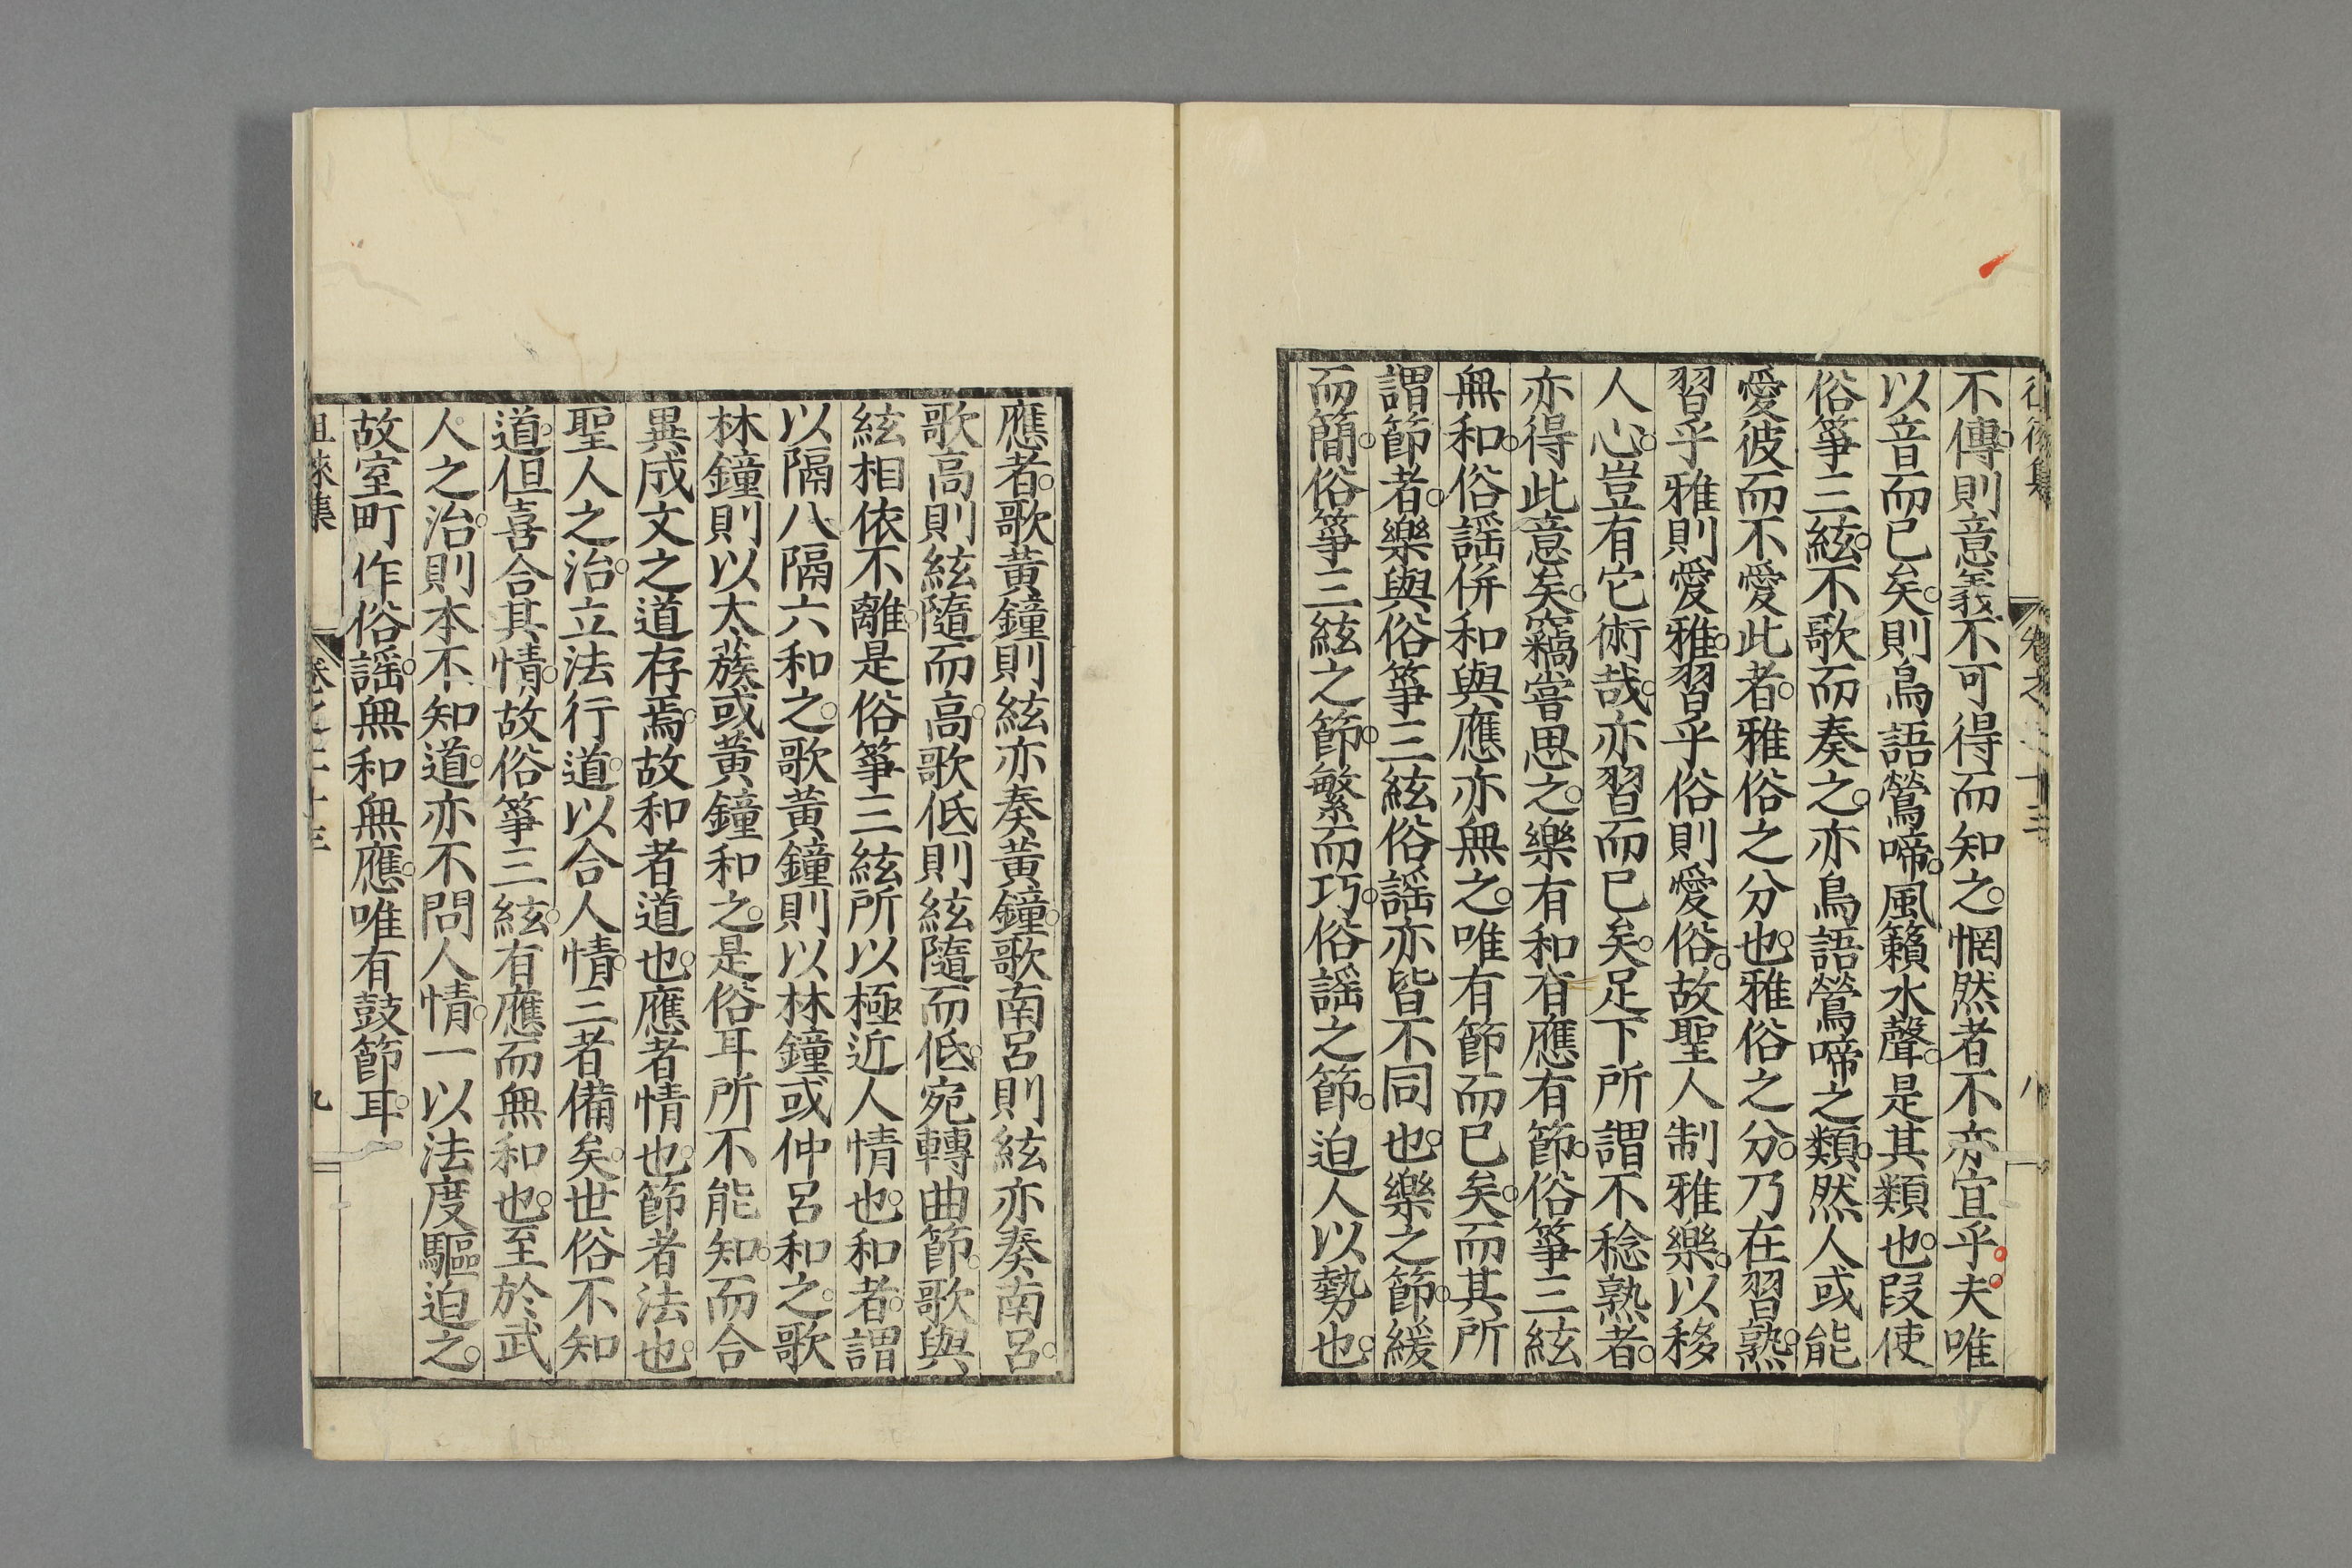 不傳。則意義不可得而知之。惘然者不亦宜乎。夫唯
以音而已矣。則鳥語鶯啼。風籟水聲。是其類也。叚使
俗箏三絃。不歌而奏之。亦鳥語鶯啼之類。然人或能
愛彼而不愛此者。雅俗之分也。雅俗之分。乃在習熟。
習乎雅則愛雅。習乎俗則愛俗。故聖人制雅樂。以移
人心。豈有它術哉。亦習而已矣。足下所謂不稔熟者。
亦得此意矣。竊嘗思之。樂有和有應有節。俗箏三絃
無和。俗謡併和與應亦無之。唯有節而已矣。而其所
謂節者。樂與俗箏三絃俗謡亦皆不同也。樂之節。緩
而簡。俗箏三絃之節。繁而巧。俗謡之節。迫人以勢也。
卷之二十三
八
應者。歌黃鐘則絃亦奏黃鐘。歌南呂則絃亦奏南呂。
歌高則絃隨而高。歌低則絃隨而低。宛轉曲節。歌與
絃相依不離。是俗箏三絃所以極近人情也。和者。謂
以隔八隔六和之。歌黃鐘則以林鐘或仲呂和之。歌
林鐘則以太蔟或黃鐘和之。是俗耳所不能知。而合
異成文之道存焉。故和者道也。應者情也。節者法也。
聖人之治。立法行道。以合人情。三者備矣。世俗不知
道。但喜合其情。故俗箏三絃。有應而無和也。至於武
人之治。則本不知道。亦不問人情。一以法度驅迫之。
故室町作俗謡。無和無應。唯有鼓節耳。
徂徠集
卷之二十三
九